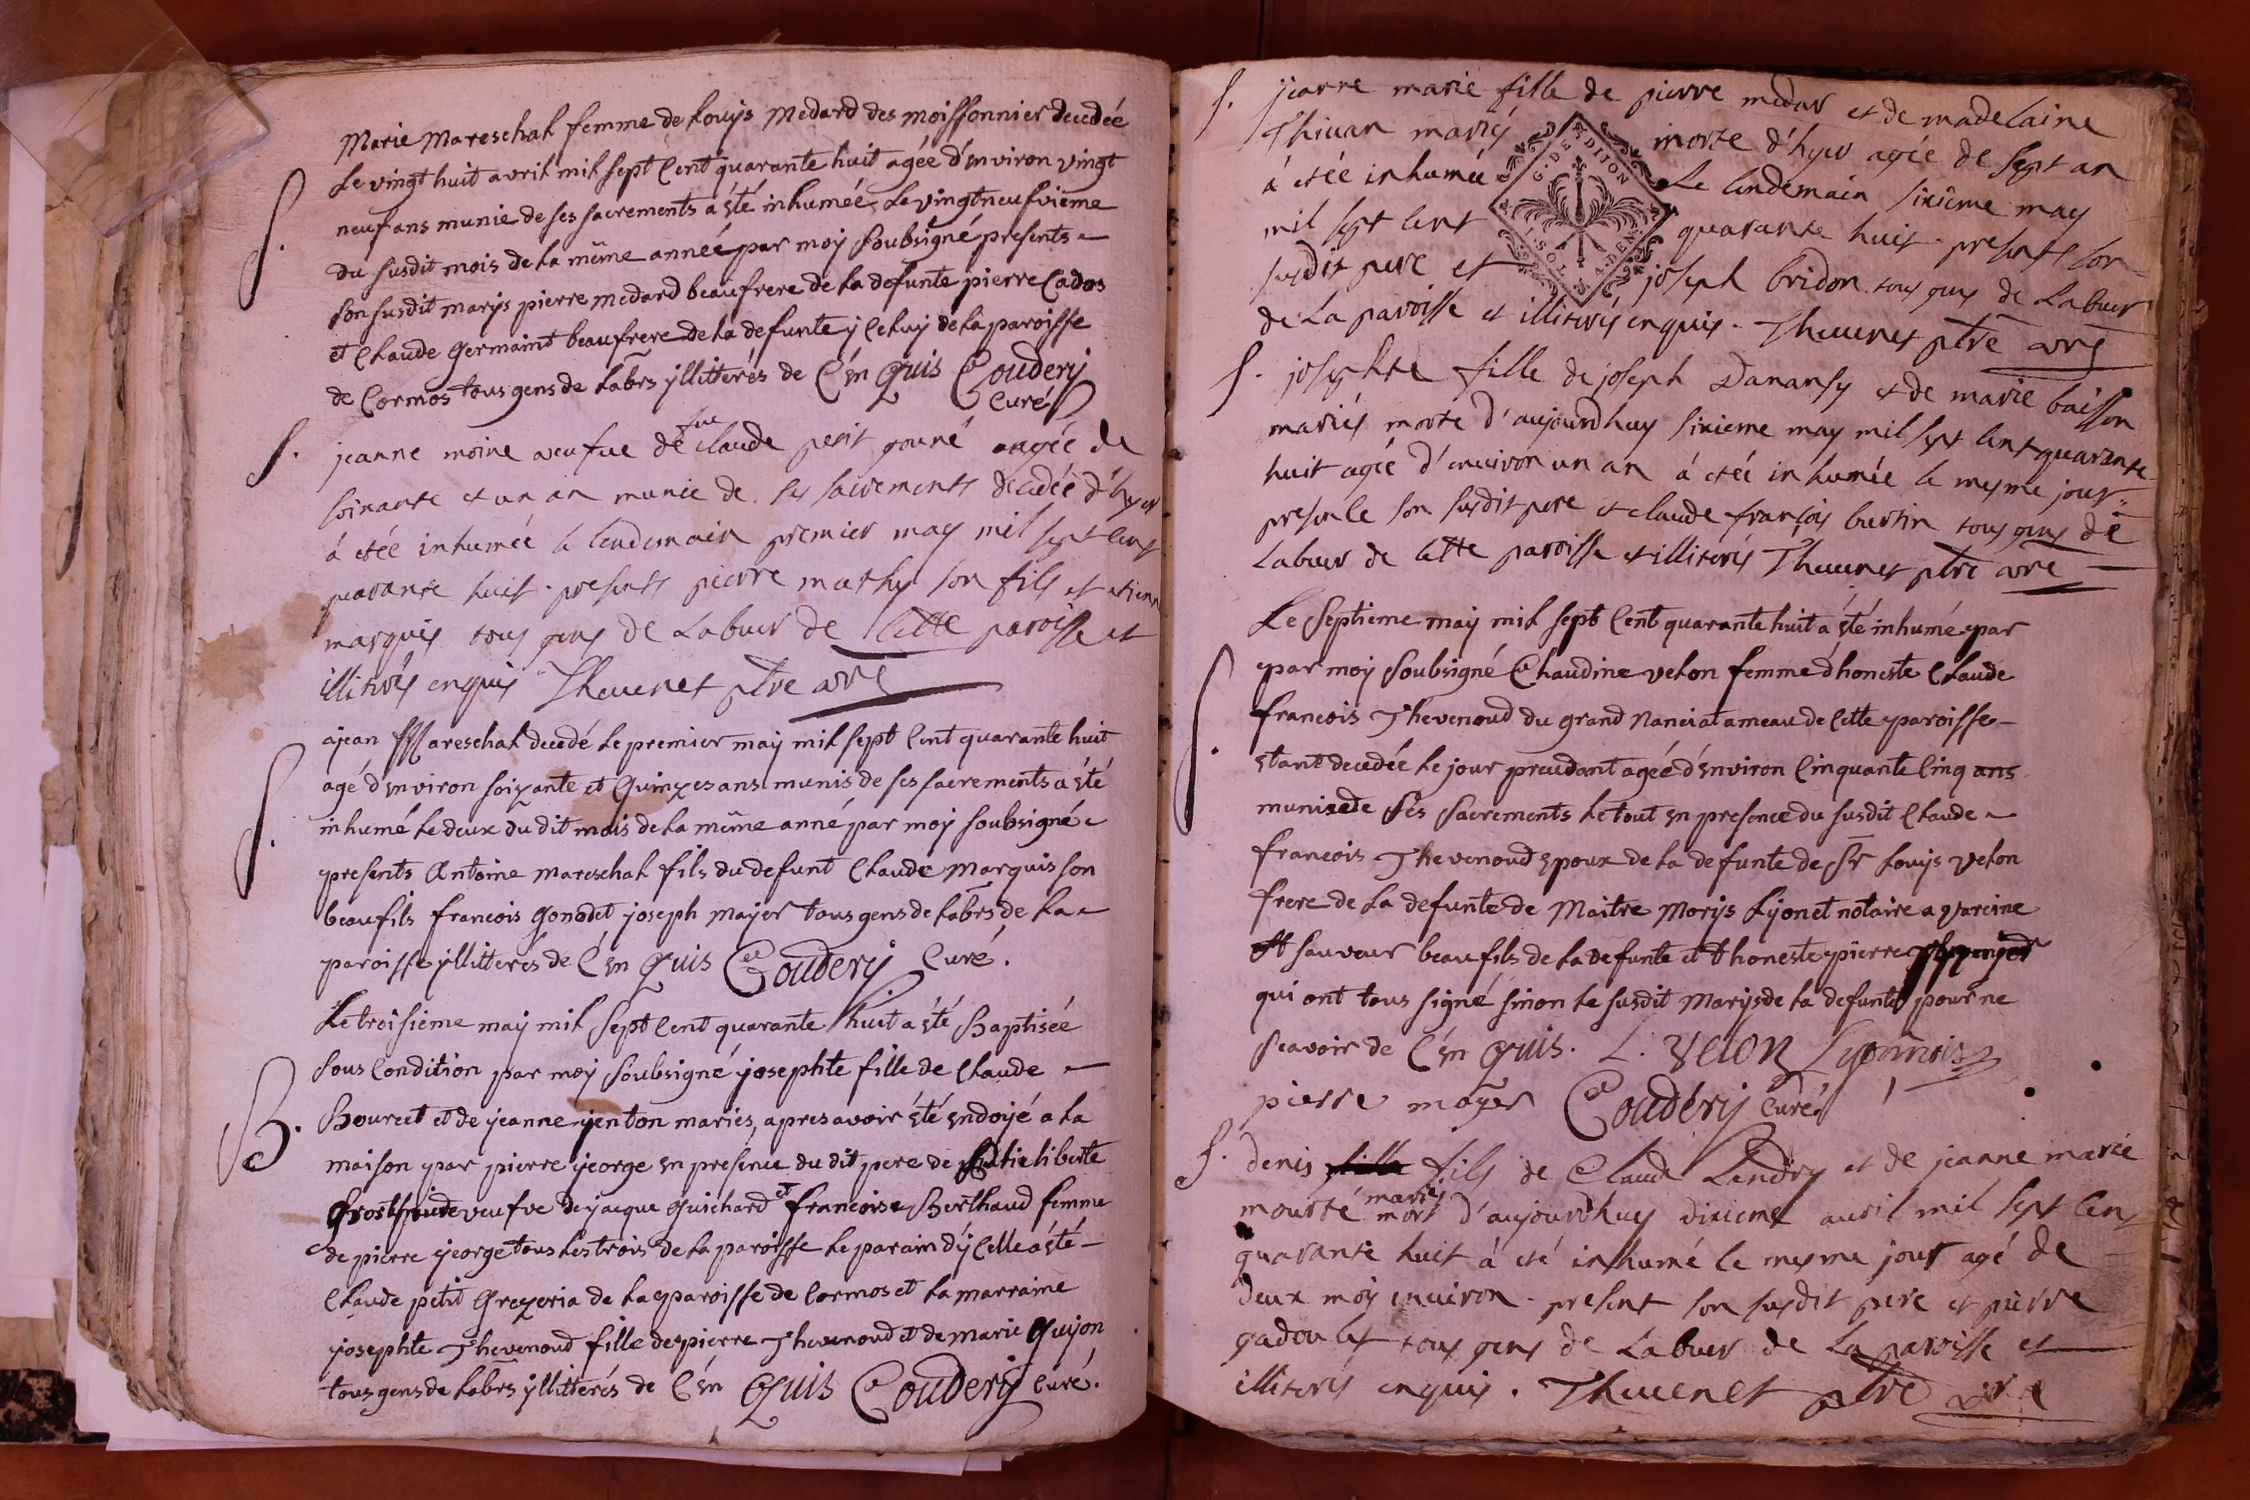 Marie Mareschal femme de Louys Medard des moissonnier decedée
Le vingt huit avril mil sept Cent quarante huit agée d'environ vingt
neuf ans munie de ses sacrements a été inhumée Le vingtneufvieme
du susdit mois de la même année par moy soubsigné presents
son susdit marys pierre medard beaufrere de la defunte pierre Cados
et Claude Germaint beaufrere de la defunte y Celuy de la paroisse
de Cormos tous gens de Labrs yllitterés de C'en Quis Coudery
Curé
S. jeanne moine veufue de feu claude petit gouné aagée de
soixante et un an munie de ses sacrements decedée d'hyer
à etée inhumée le lendemain premier may mil sept cent
quarante huit. presents pierre mathy son fils et etienn
marquis tous gens de Labeur de cette paroisse et
illiterés enquis Theuenet ptre vre
S. ajean Mareschal decedé le premier may mil sept Cent quarante huit
agé d'environ soixante et Quinzes ans munis de ses sacrements a été
inhumé le deux du dit mois de la même anné par moy soubsigné
presents Antoine mareschal fils du defunt Claude Marquis son
beaufils francois Gonodet joseph Mayer tous gens de Labrs de la
paroisse yllitterés de C'en Quis Coudery Curé.
Le troisieme may mil sept Cent quarante huit a été Baptisée
sous Condition par moy soubsigné josephte fille de Claude
B. Bourcet et de jeanne jenton mariés, apres avoir été endoyé a la
maison par pierre jeorge en presence du dit pere de liberte
veufve de jacque Guichard et francoise Berthaud femme
de pierre jeorge tous les trois de la paroisse Le parain d'y Celle a été
Claude petit Grezeria de la paroisse de Cormos et la marraine
josephte Thevenoud fille de pierre Thevenoud et de marie Guijon
tous gens de Labrs yllitterés de C'en Quis Coudery Curé.
S. jeanne marie fille de pierre medar et de madelaine
Thiuan mariés morte d'hyer agée de sept an
à etée inhumée Le lendemain sixieme may
mil sept cent quarante huit. presents son
susdit pere et joseph bridon tous gens de Labeur
de La paroisse et illiterés enquis. Theuenet ptre vre
G. DE DIJON
S. josephte fille de joseph Danansy et de marie baisson
mariés morte d'aujourdhuy sixieme may mil sept cent quarante
huit agée d'enuiron un an à etée inhumée le mesme jour
presen le son susdit pere et claude françois burtin tous gens de
Labeur de cette paroisse et illiterés Theuenet ptre vre
Le Septieme may mil sept Cent quarante huit a été inhumé par
par moy soubsigné Claudine velon femme d'honeste Claude
francois Thevenoud du grand Nanciat ameau de Cette paroisse
etant decedée le jour precedant agée d'environ Cinquante Cinq ans
munie de ses sacrements le tout en presence du susdit Claude
francois Thevenoud epoux de la defunte de Sr Louys velon
frere de la defunte de Maitre Morys Lyonet notaire a vareine
St sauveur beaufils de la defunte et d'honeste pierre
qui ont tous signé sinon le susdit Marys de la defunte pour ne
scavoir de C'en Quis. L. velon Lyonnois
pierre mayer Coudéry Curé
S. denis fils de Claude Landry et de jeanne marie
mourté mariés mort d'aujourdhuy dixieme auril mil sept cent
quarante huit à eté inhumé le mesme jour agé de
deux moy enuiron. present son susdit pere et pierre
gadoulet tous gens de Labeur de La paroisse et
illiterés enquis. Theuenet ptre vre